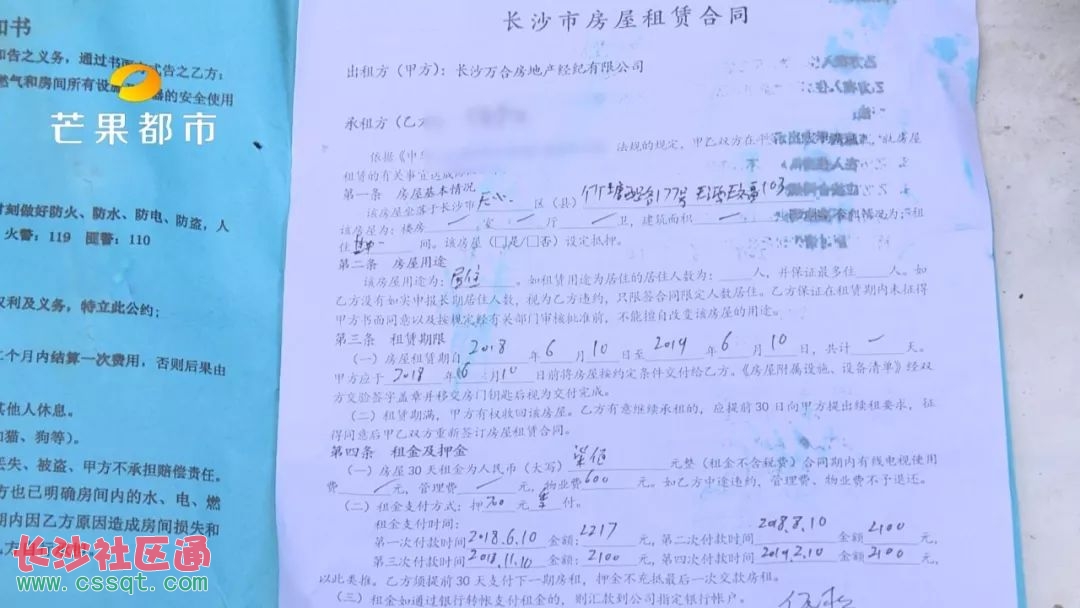 知书
和告之义务，通过书面 式告之乙方；
燃气和房间所有设施 器的安全使用
芒果都市
时刻做好防火、防水、防电、防盗，人
火警：119 匪警：110
权利及义务，特立此公约；
二个月内结算一次费用，否则后果由
其他人休息。
如猫、狗等）。
丢失、被盗，甲方不承担赔偿责任。
方也已明确房间内的水、电、燃
期内因乙方原因造成房间损失和
长沙社区通
www.cssqt.com
长沙市房屋租赁合同
出租方（甲方）：长沙万合房地产经纪有限公司
承租方（乙方
依据《中华 法规的规定，甲乙双方在 就房屋
租赁的有关事宜达成
第一条 房屋基本情况
该房屋坐落于长沙市 天心 区（县） 177号 103
该房屋为：楼房 室 厅 卫，建筑面积 情况为：租
住 间。该房屋（□是/□否）设定抵押。
第二条 房屋用途
该房屋用途为：居住 。如租赁用途为居住的居住人数为： 人，并保证最多住 人。如
乙方没有如实申报长期居住人数，视为乙方违约，只限签合同限定人数居住。乙方保证在租赁期内未征得
甲方书面同意以及按规定经有关部门审核批准前，不能擅自改变该房屋的用途。
第三条 租赁期限
（一）房屋租赁期自 2018 年 6 月 10 日至 2019 年 6 月 10 日，共计 天。
甲方应于 2018 年 6 月 10 日前将房屋按约定条件交付给乙方。《房屋附属设施、设备清单》经双
方交验签字盖章并移交房门钥匙后视为交付完成。
（二）租赁期满，甲方有权收回该房屋。乙方有意继续承租的，应提前30日向甲方提出续租要求，征
得同意后甲乙双方重新签订房屋租赁合同。
第四条 租金及押金
（一）房屋30天租金为人民币（大写） 柒佰 元整（租金不含税费）合同期内有线电视使用
费 元，管理费 元，物业费 600 元。如乙方中途违约，管理费、物业费不予退还。
（二）租金支付方式：押 700 元 季 付。
租金支付时间：
第一次付款时间 2018.6.10 金额：2217 元，第二次付款时间 2018.8.10 金额 2100 元，
第三次付款时间 2018.11.10 金额：2100 元，第四次付款时间 2019.2.10 金额 2100 元，
以此类推。乙方须提前30天支付下一期房租，押金不充抵最后一次交款房租。
（三）租金如通过银行转帐支付租金的，则汇款到公司指定银行帐户。